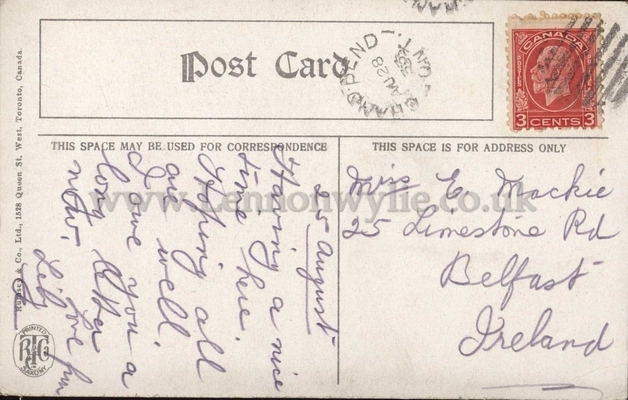 Post Card
CANADA
3 CENTS 3
AU 28
ONT.
THIS SPACE MAY BE USED FOR CORRESPONDENCE
THIS SPACE IS FOR ADDRESS ONLY
25 August
Having a nice
time here.
Hoping all
are well.
I owe you a
long letter
now. Love from
Lily
Miss E. Mackie
25 Limestone Rd
Belfast
Ireland
& Co., Ltd., 1528 Queen St. West, Toronto, Canada.
PRINTED
SAXONY
www.Lennonwylie.co.uk